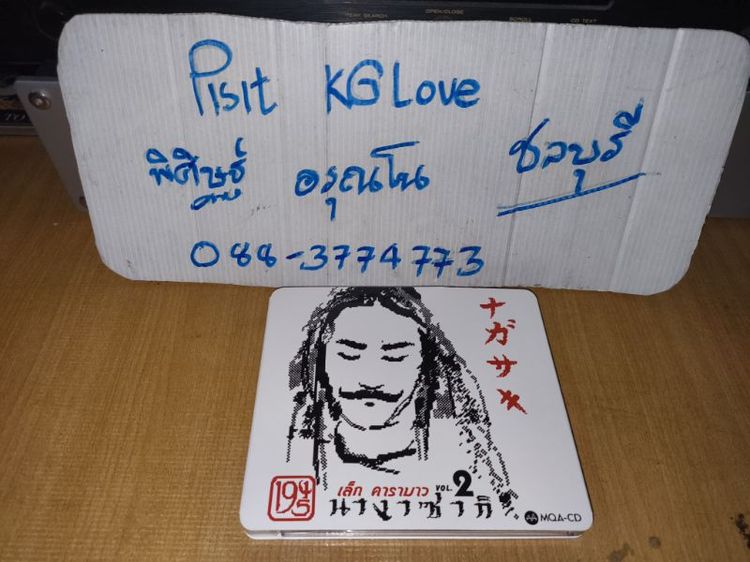 OPEN/CLOSE
Pisit KG Love
พิศิษฐ์ อรุณโน ชลบุรี
088-3774773
ナガサキ
1945
เล็ก คาราบาว VOL. 2
นางาซากิ
MQA-CD